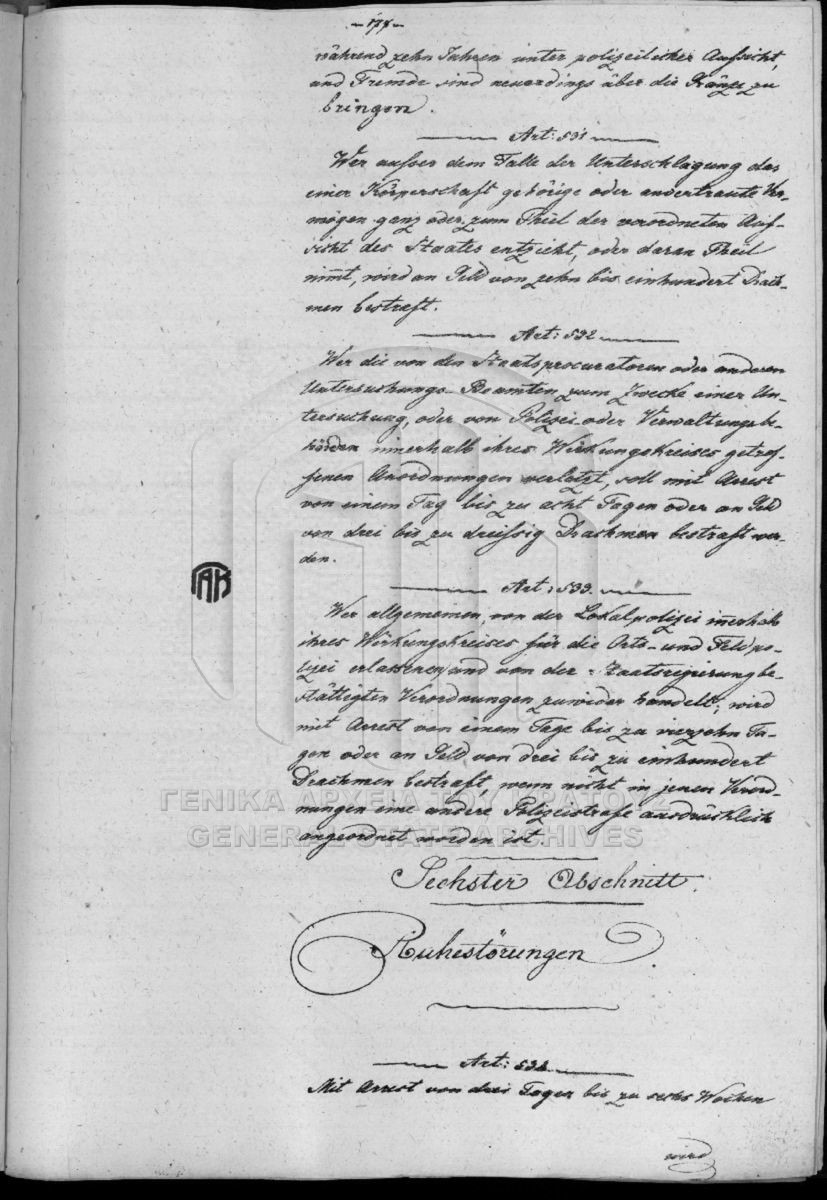 - 178 -
während zehn Jahren unter polizeilicher Aufsicht,
und Fremde sind neuerdings über die Gränze zu
bringen.
Art: 531
Wer ausser dem Falle der Unterschlagung das
einer Körperschaft gehörige oder anvertraute Ver-
mögen ganz oder zum Theil der verordneten Auf-
sicht des Staates entzieht, oder daran Theil
nimmt, wird an Geld von zehn bis einhundert Drach-
men bestraft.
Art: 532
Wer die von den Staatsprocuratoren oder anderen
Untersuchungs-Beamten zum Zwecke einer Un-
tersuchung, oder von Polizei oder Verwaltungsbe-
hörden innerhalb ihres Wirkungskreises getrof-
fenen Anordnungen verletzt, soll mit Arrest
von einem Tag bis zu acht Tagen oder an Geld
von drei bis zu dreissig Drachmen bestraft wer-
den.
Art: 533.
Wer allgemeinen, von der Lokalpolizei innerhalb
ihres Wirkungskreises für die Orts- und Feldpo-
lizei erlassenen und von der Staatsregierung be-
stättigten Verordnungen zuwider handelt, wird
mit Arrest von einem Tage bis zu vierzehn Ta-
gen oder an Geld von drei bis zu einhundert
Drachmen bestraft, wenn nicht in jenen Verord-
nungen eine andere Polizeistrafe ausdrücklich
angeordnet worden ist.
Sechster Abschnitt.
Ruhestörungen.
Art: 534
Mit Arrest von drei Tagen bis zu sechs Wochen
wird
ΓΑΚ
ΓΕΝΙΚΑ ΑΡΧΕΙΑ ΤΟΥ ΚΡΑΤΟΥΣ
GENERAL STATE ARCHIVES